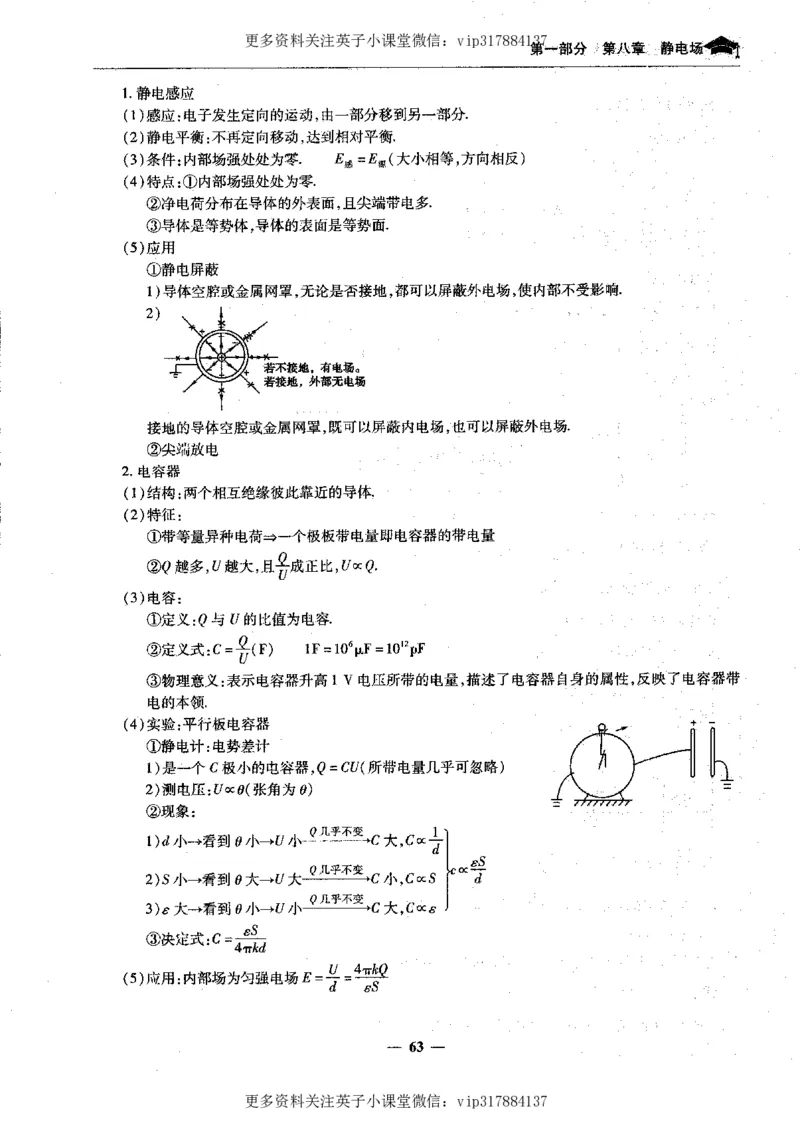 更多资料关注英子小课堂微信：vip317884137
第一部分 第八章 静电场
1. 静电感应
(1)感应:电子发生定向的运动,由一部分移到另一部分.
(2)静电平衡:不再定向移动,达到相对平衡.
(3)条件:内部场强处处为零. E感=E源(大小相等,方向相反)
(4)特点:①内部场强处处为零.
②净电荷分布在导体的外表面,且尖端带电多.
③导体是等势体,导体的表面是等势面.
(5)应用
①静电屏蔽
1)导体空腔或金属网罩,无论是否接地,都可以屏蔽外电场,使内部不受影响.
2)
若不接地，有电场。
若接地，外部无电场
接地的导体空腔或金属网罩,既可以屏蔽内电场,也可以屏蔽外电场.
②尖端放电
2. 电容器
(1)结构:两个相互绝缘彼此靠近的导体.
(2)特征:
①带等量异种电荷⇒一个极板带电量即电容器的带电量
②Q 越多,U 越大,且Q/U成正比,U∝Q.
(3)电容:
①定义:Q 与 U 的比值为电容.
②定义式:C=Q/U(F) 1F=10⁶μF=10¹²pF
③物理意义:表示电容器升高 1 V 电压所带的电量,描述了电容器自身的属性,反映了电容器带
电的本领.
(4)实验:平行板电容器
①静电计:电势差计
1)是一个 C 极小的电容器,Q=CU(所带电量几乎可忽略)
2)测电压:U∝θ(张角为 θ)
②现象:
+ −
1)d 小→看到 θ 小→U 小 Q几乎不变→C 大,C∝1/d
2)S 小→看到 θ 大→U 大 Q几乎不变→C 小,C∝S
c∝εS/d
3)ε 大→看到 θ 小→U 小 Q几乎不变→C 大,C∝ε
③决定式:C=εS/4πkd
(5)应用:内部场为匀强电场 E=U/d=4πkQ/εS
— 63 —
更多资料关注英子小课堂微信：vip317884137